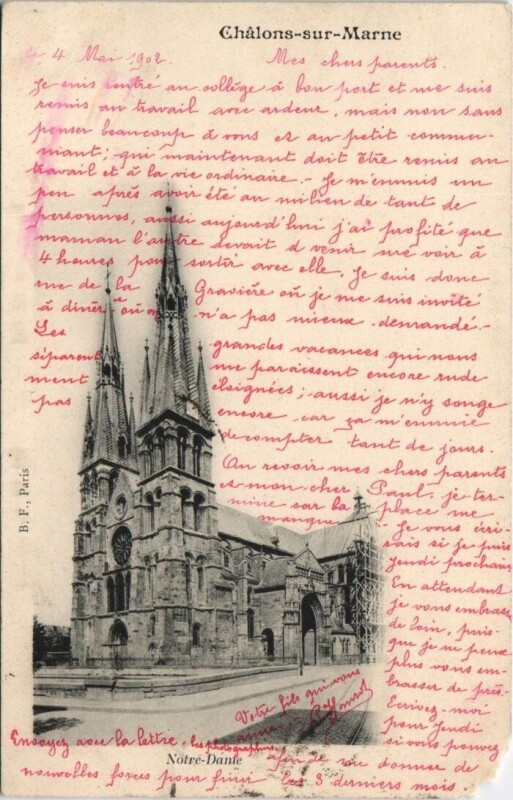 Châlons-sur-Marne
4 Mai 1902 Mes chers parents.
Je suis rentré au collège à bon port et me suis
remis au travail avec ardeur, mais non sans
penser beaucoup à vous et au petit commer-
niant; qui maintenant doit être remis au
travail et à la vie ordinaire. - Je m'ennuis un
peu après avoir été au milieu de tant de
personnes, aussi aujourd'hui j'ai profité que
maman l'autre devait venir me voir à
4 heures pour sortir avec elle. Je suis donc
me de la Gravière où je me suis invité
à dîner où on n'a pas mieux demandé. -
Les grandes vacances qui nous
séparent me paraissent encore rude
ment éloignées; aussi je n'y songe
pas encore car ça m'ennuie
de compter tant de jours.
Au revoir mes chers parents
et mon cher Paul, je ter-
mine car la place me
manque
Je vous écri-
rais si je puis
Jeudi prochain
En attendant
je vous embrasse
de loin, puis-
que je ne peux
plus vous em-
brasser de près.
Ecrivez-moi
pour Jeudi
si vous pouvez
afin de me donner de
nouvelles forces pour finir les 3 derniers mois.
Votre fils qui vous
aime
Envoyez avec la lettre, les photographies
Notre-Dame
B. F., Paris